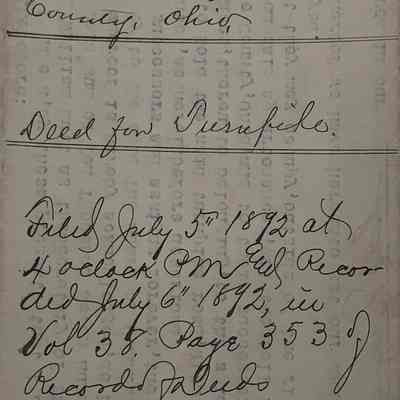 County, Ohio,
Deed for Turnpike.
Filed July 5" 1892 at
4 oclock PM and Recor
ded July 6" 1892, in
Vol 38. Page 353 of
Record of Deeds